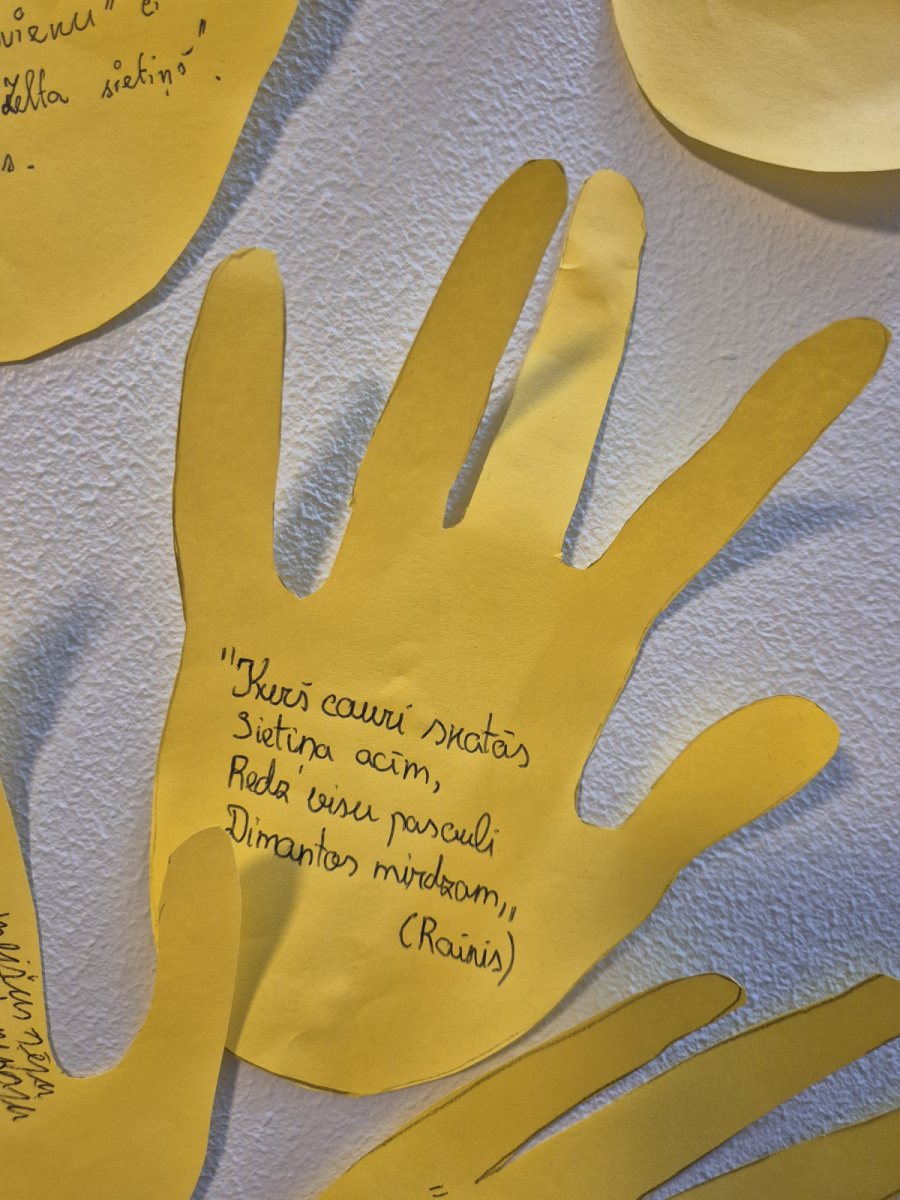 vienu" ei
Zelta sietiņš".
s.
"Kurš cauri skatās
Sietiņa acīm,
Redz visu pasauli
Dimantos mirdzam,,
(Rainis)
"